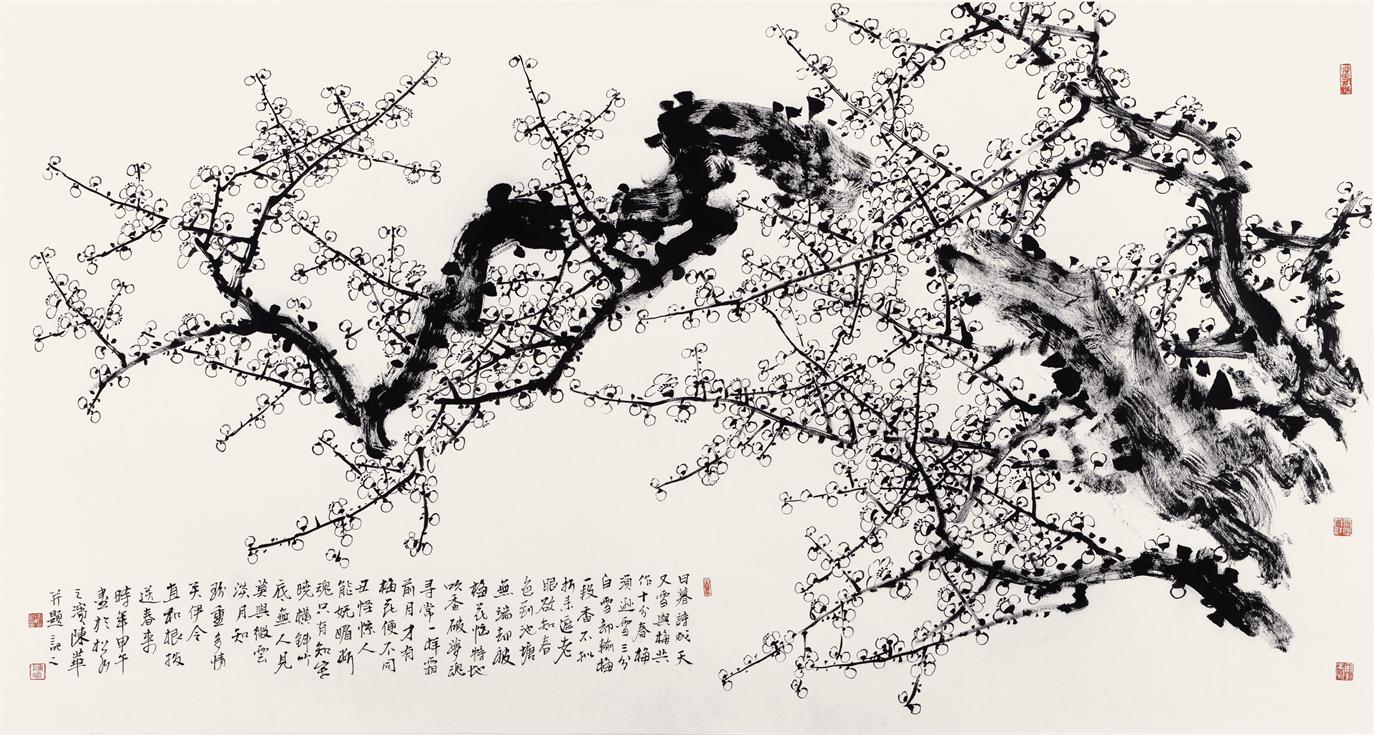 日暮詩成天
又雪與梅共
作十分春梅
須遜雪三分
白雪却輸梅
一段香不拟
折来遮老
眼欲知春
色到池塘
無端却被
梅花恼特地
吹香破夢魂
尋常一样窗
前月才有
梅花便不同
丑怪惊人
能妩媚断
魂只有知寒
晓横斜竹
底無人見
莫與微雲
淡月知
珍重多情
关伊令
直和根拨
送春来
時年甲午
畫於松
之濱陳華
并題記之